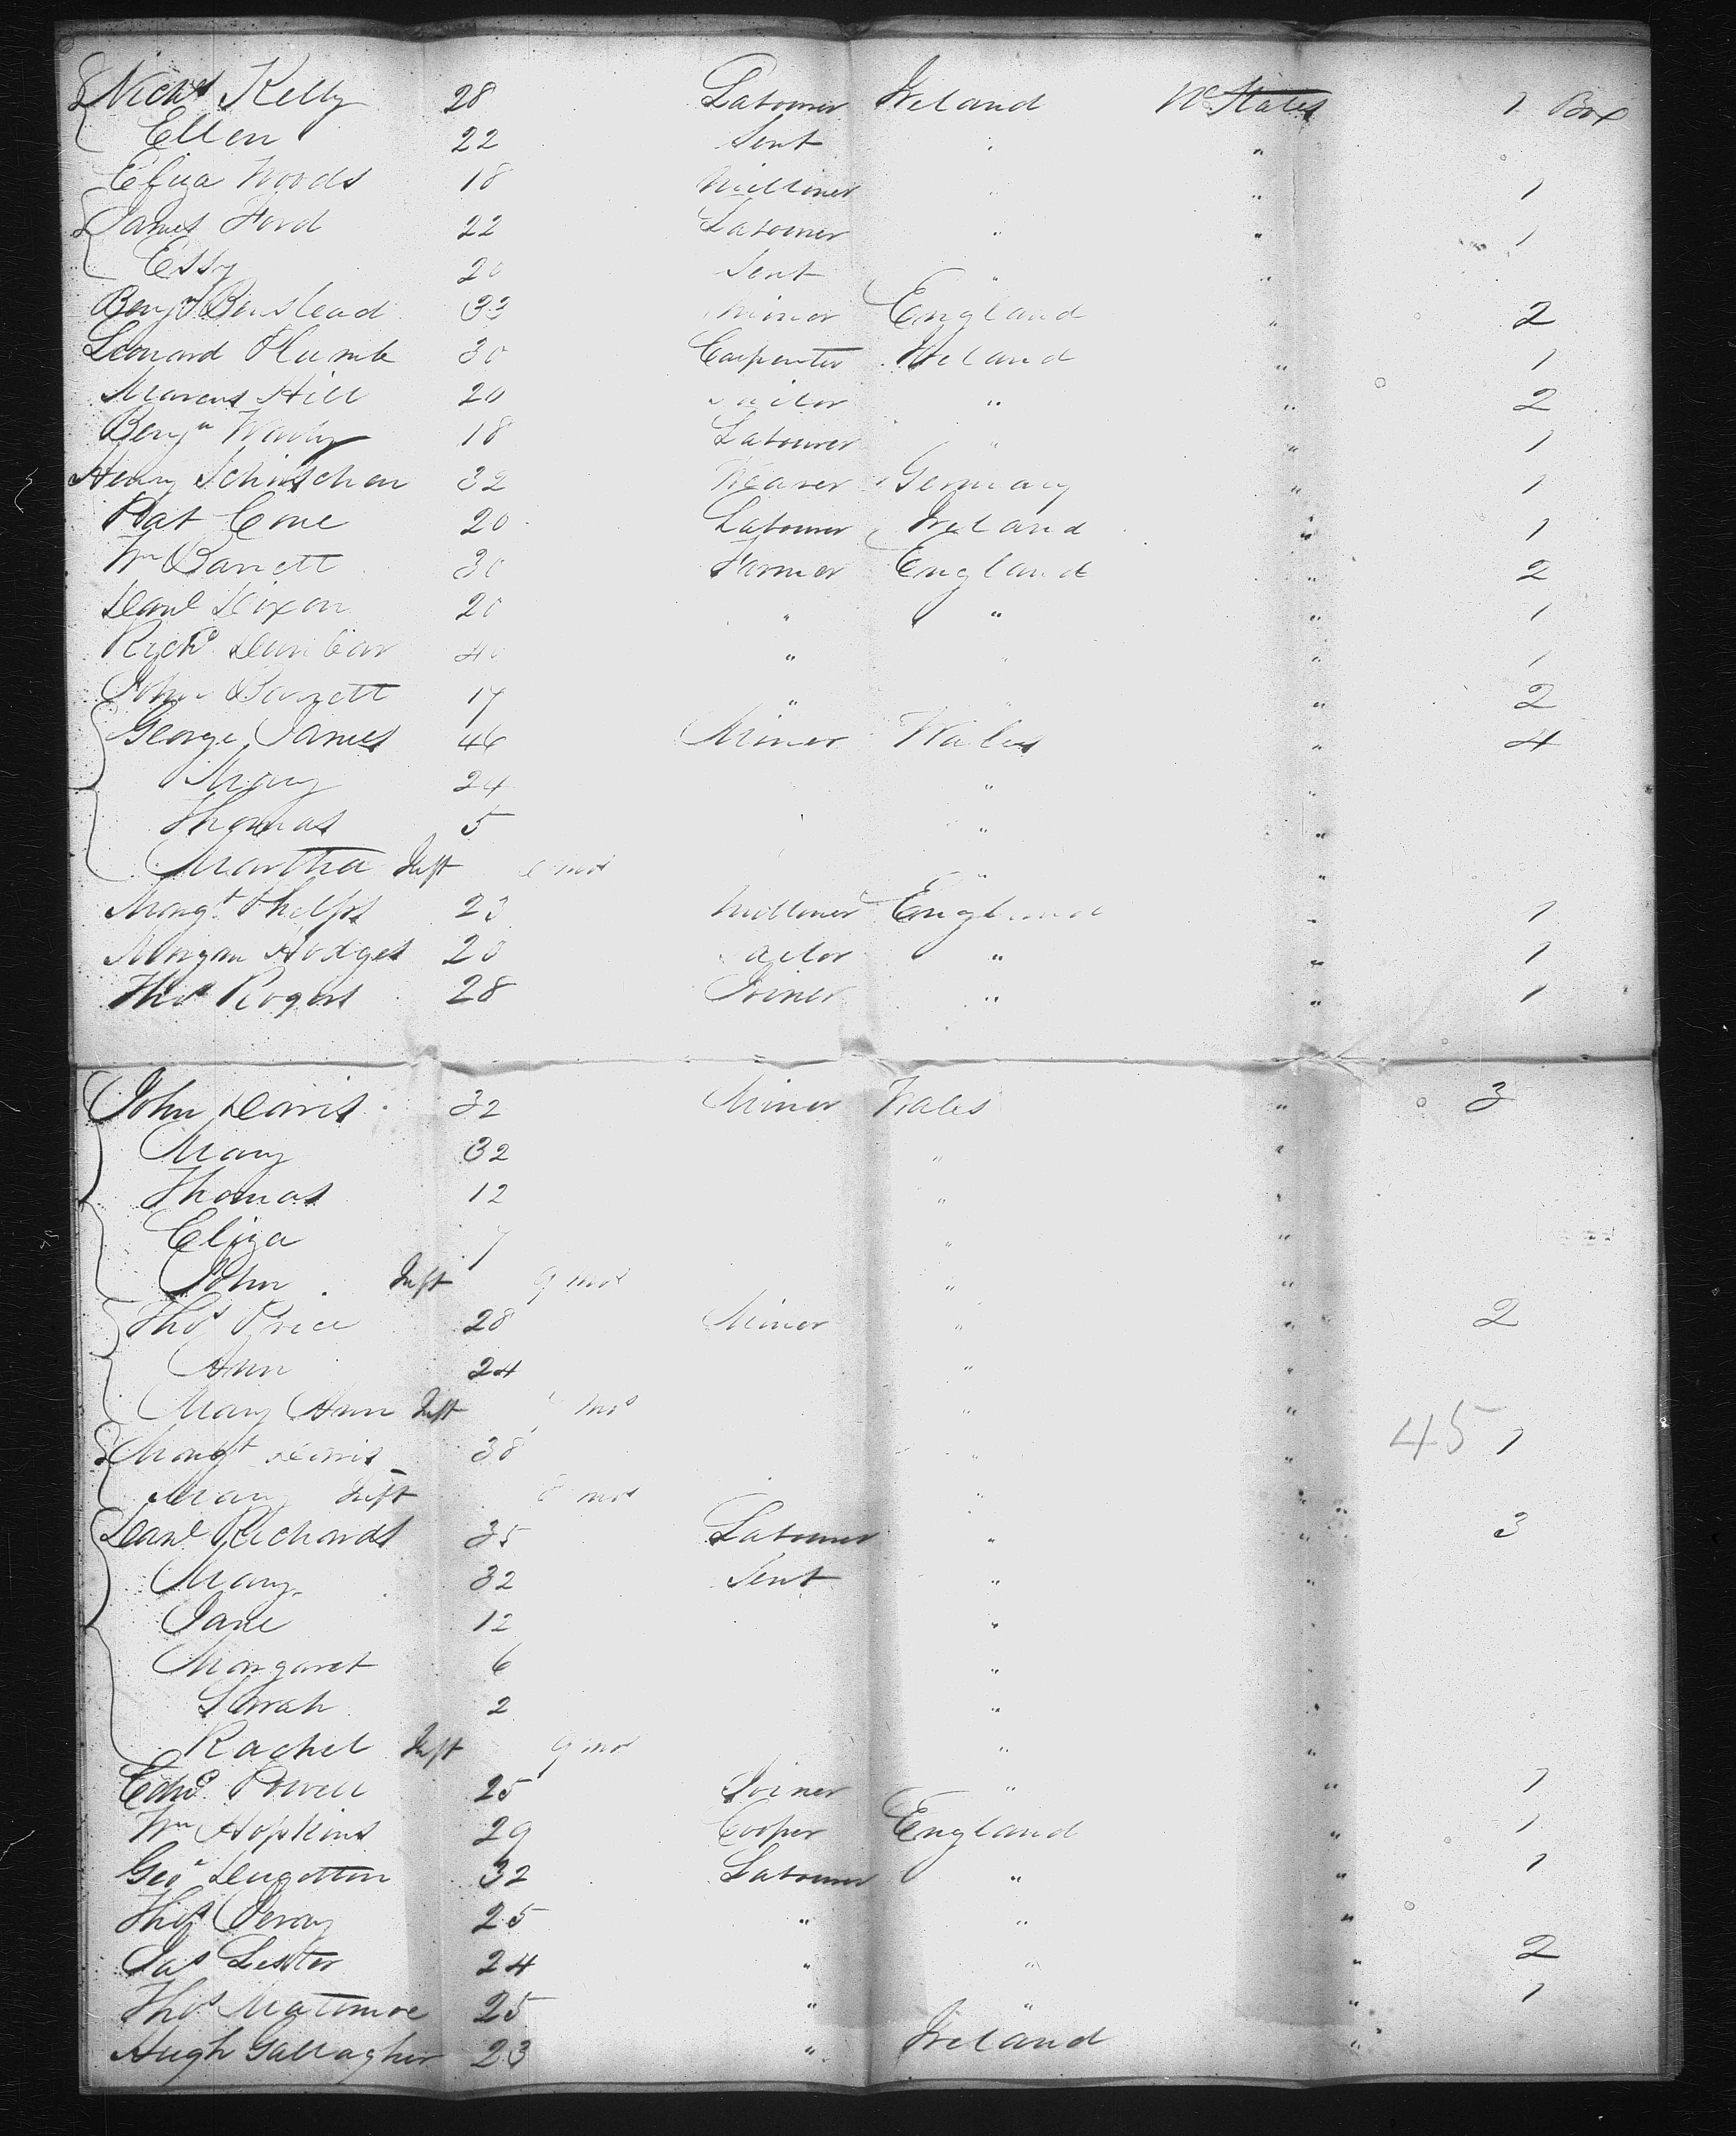 Nichs Kelly 28 Labourer Ireland Ud States 1 Box
Ellen 22 Sert " "
Eliza Woods 18 Milliner " " 1
James Ford 22 Labourer " " 1
Essy 20 Sert " "
Benjn Benstead 33 Miner England " 2
Leonard Plumb 30 Carpenter Ireland " 1
Marcus Hill 20 Tailor " " 2
Benjn 18 Labourer " " 1
Henry 32 Weaver Germany " 1
Pat Cone 20 Labourer Ireland " 1
Wm Barrett 30 Farmer England " 2
Danl Dixon 20 " " " 1
Richd Dunbar 40 " " " 1
John Barrett 17 " " " 2
George James 46 Miner Wales " 4
Mary 24 " "
Thomas 5 " "
Martha Inft mos " "
Margt Phelps 23 Milliner England " 1
Morgan Hodges 20 " " 1
Thos Rogers 28 Joiner " " 1
John Davis 32 Miner Wales " 3
Mary 32 " "
Thomas 12 " "
Eliza 7 " "
John Inft 9 mos " "
Thos Price 28 Miner " " 2
Ann 24 " "
Mary Ann Inft mos " "
Margt Davis 38 " " 45 1
Mary Inft 8 mos " "
Danl Richards 35 Labourer " " 3
Mary 32 Sert " "
Jane 12 " "
Margaret 6 " "
Sarah 2 " "
Rachel Inft 9 mos " "
Edwd Powell 25 Joiner " " 1
Wm Hopkins 29 Cooper England " 1
Geo 32 Labourer " " 1
Thos 25 " " "
Jas Lester 24 " " " 2
Thos 25 " " " 1
Hugh Gallagher 23 " Ireland "